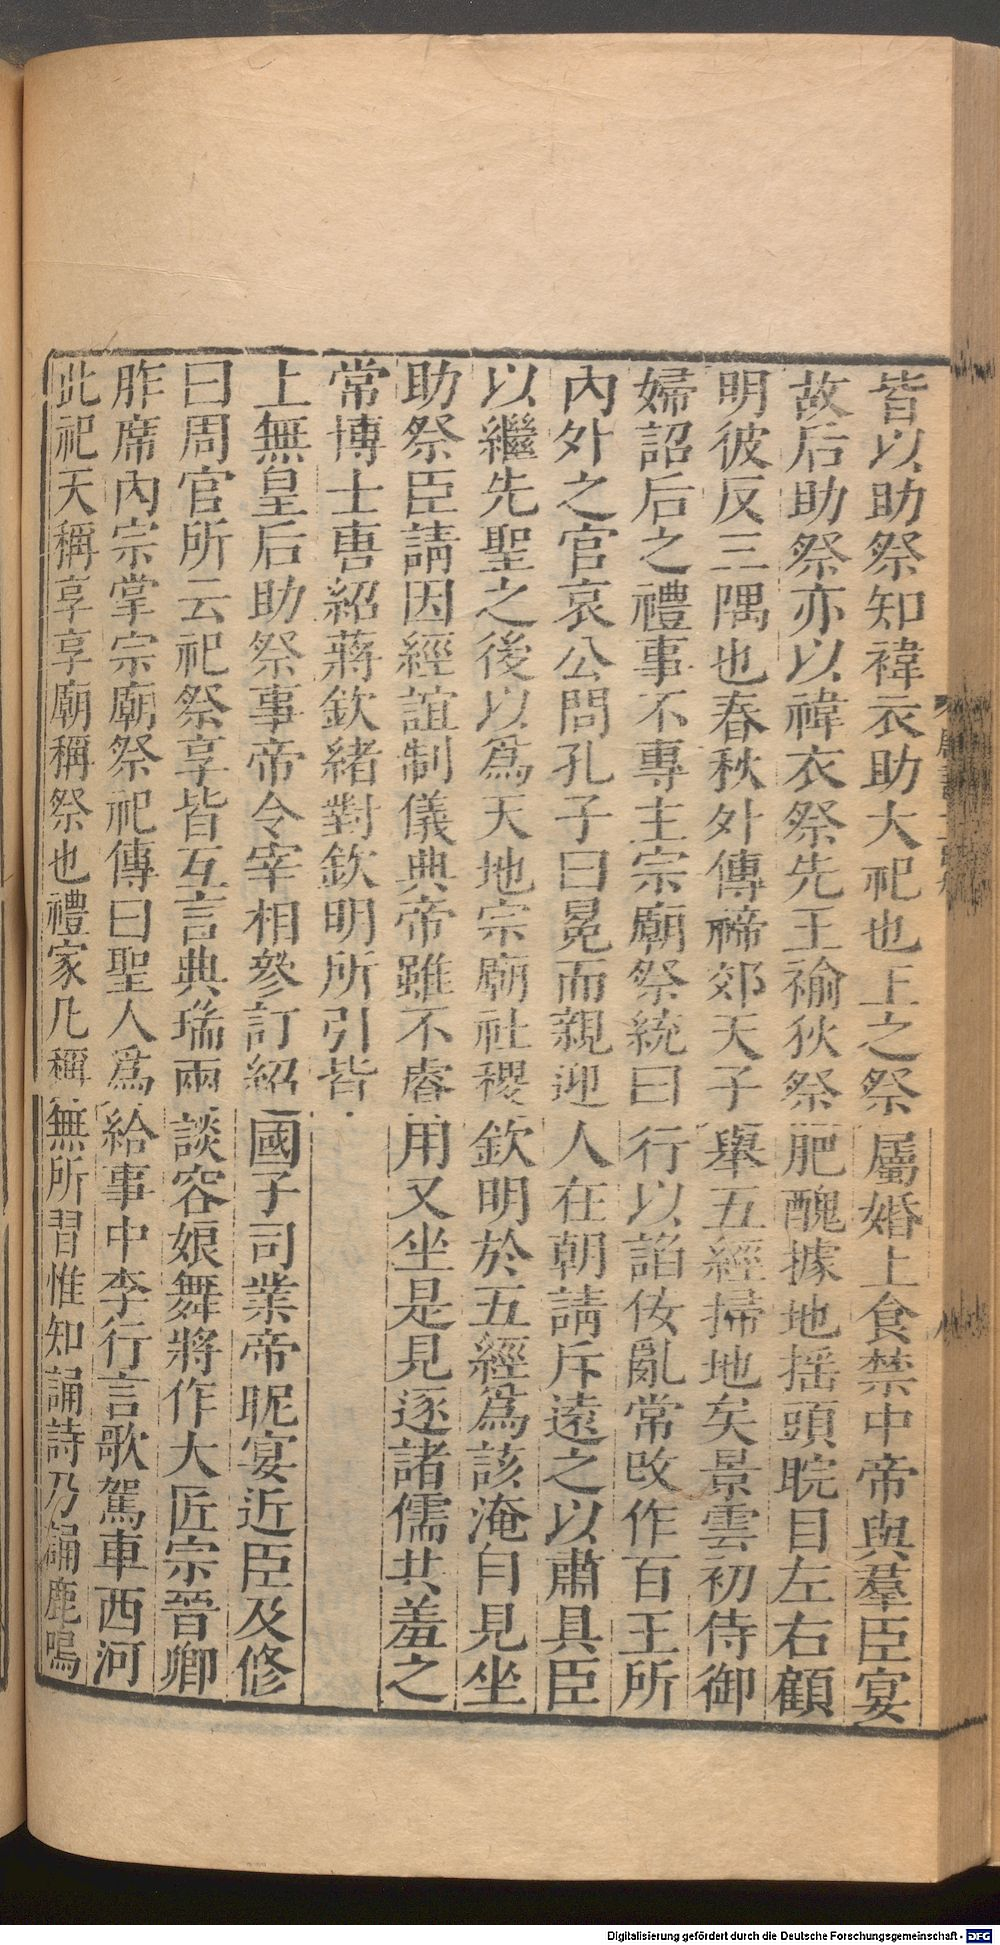 皆以助祭知褘衣助大祀也王之祭屬婚上食禁中帝與羣臣宴
故后助祭亦以褘衣祭先王褕狄祭肥醜據地揺頭睆目左右顧
明彼反三隅也春秋外傳禘郊天子舉五經掃地矣景雲初侍御
婦詔后之禮事不專主宗廟祭統曰行以諂佞亂常改作百王所
內外之官哀公問孔子曰冕而親迎人在朝請斥遠之以肅具臣
以繼先聖之後以爲天地宗廟社稷欽明於五經爲該淹自見坐
助祭臣請因經誼制儀典帝雖不睿用又坐是見逐諸儒共羞之
常博士唐紹蔣欽緒對欽明所引皆
上無皇后助祭事帝令宰相參訂紹國子司業帝昵宴近臣及修
曰周官所云祀祭享皆互言典瑞兩談容娘舞將作大匠宗晉卿
胙席內宗掌宗廟祭祀傳曰聖人爲給事中李行言歌駕車西河
此祀天稱享享廟稱祭也禮家凡稱無所習惟知誦詩乃誦鹿鳴
Digitalisierung gefördert durch die Deutsche Forschungsgemeinschaft - DFG